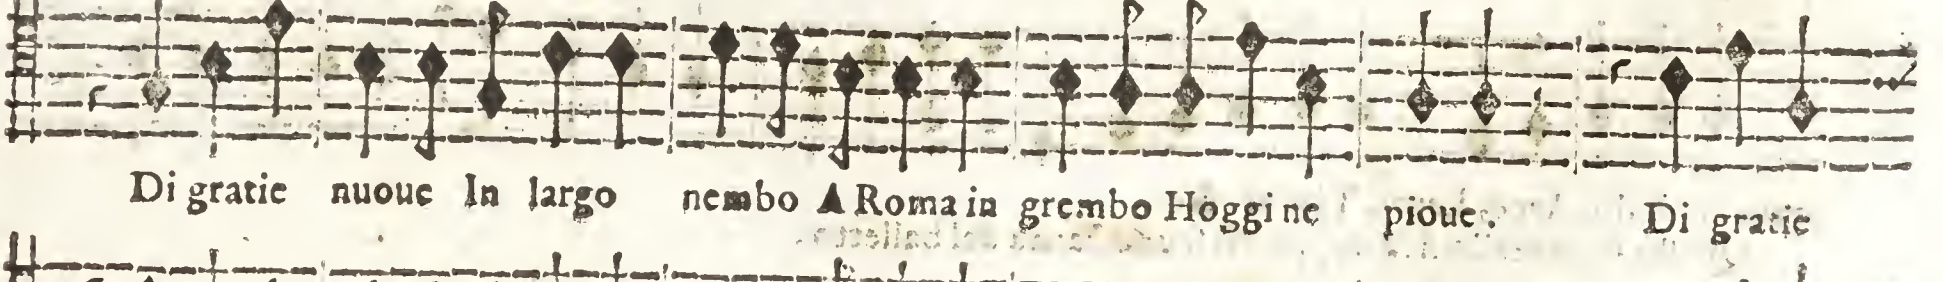 Di gratie nuoue In largo nembo A Roma in grembo Hoggi ne pioue. Di gratie